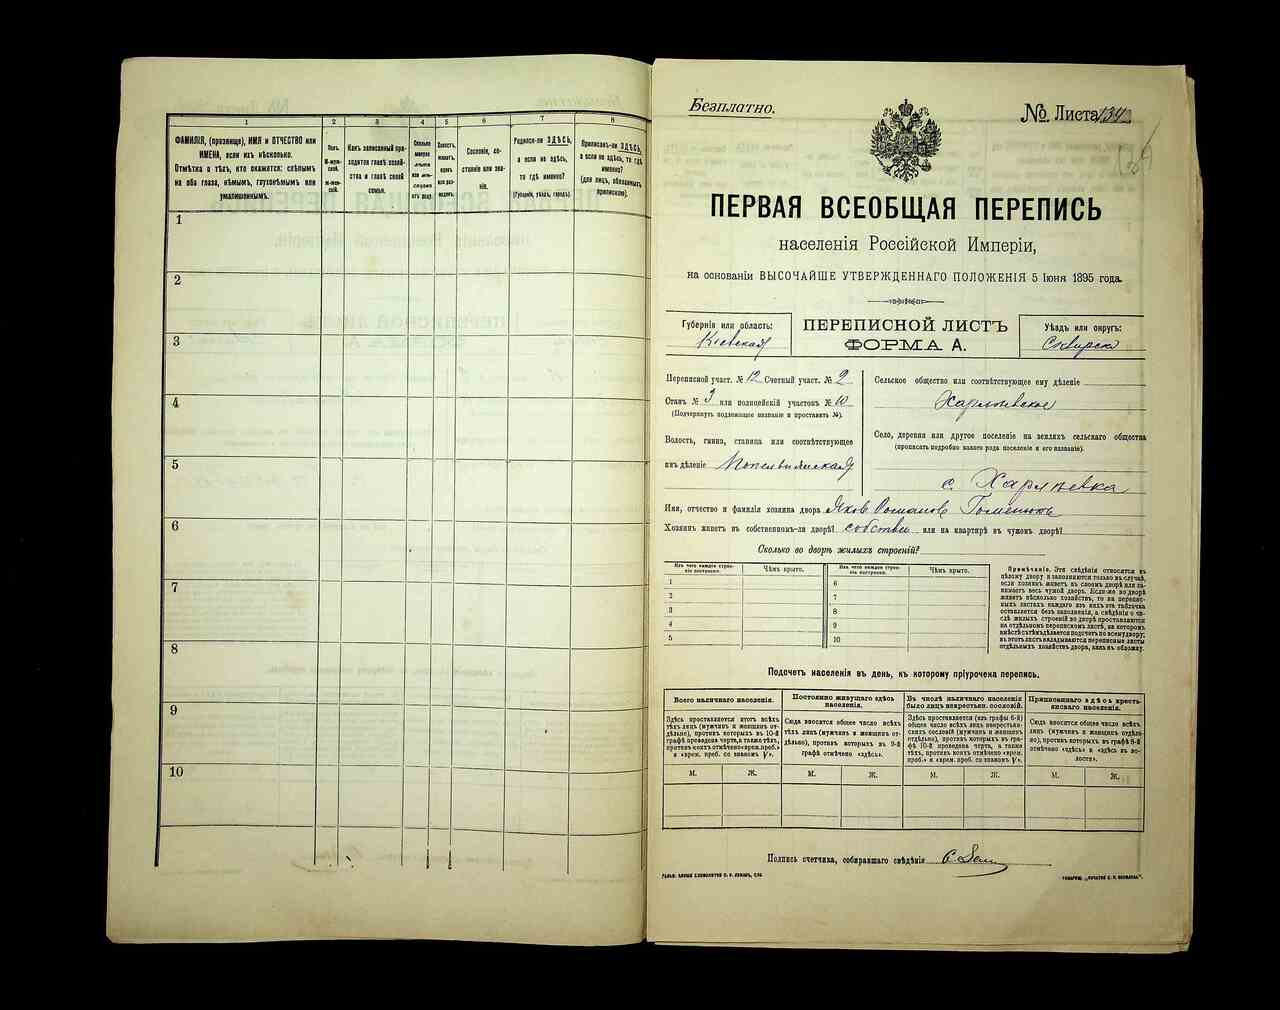 1 2 3 4 5 6 7 8
ФАМИЛІЯ, (прозвище), ИМЯ и ОТЧЕСТВО или
ИМЕНА, если ихъ нѣсколько.
Отмѣтка о тѣхъ, кто окажется: слѣпымъ
на оба глаза, нѣмымъ, глухонѣмымъ или
умалишеннымъ.
Полъ.
М-муж-
ской.
Ж-жен-
скій.
Какъ записанный при-
ходится главѣ хозяй-
ства и главѣ своей
семьи.
Сколько
минуло
лѣтъ
или мѣ-
сяцевъ
отъ роду.
Холостъ,
женатъ,
вдовъ
или раз-
веденъ.
Сословіе, со-
стояніе или зва-
ніе.
Родился-ли ЗДѢСЬ,
а если не здѣсь,
то гдѣ именно?
(Губернія, уѣздъ, городъ).
Приписанъ-ли ЗДѢСЬ,
а если не здѣсь, то гдѣ
именно?
(для лицъ, обязанныхъ
припискою).
1
2
3
4
5
6
7
8
9
10
Безплатно.
№ Листа 134
ПЕРВАЯ ВСЕОБЩАЯ ПЕРЕПИСЬ
населенія Россійской Имперіи,
на основаніи ВЫСОЧАЙШЕ УТВЕРЖДЕННАГО ПОЛОЖЕНІЯ 5 Іюня 1895 года.
Губернія или область:
Кіевская
ПЕРЕПИСНОЙ ЛИСТЪ
ФОРМА А.
Уѣздъ или округъ:
Сквирск
Переписной участ. № 12 Счетный участ. № 2
Станъ № 3 или полицейскій участокъ № 10
(Подчеркнуть подлежащее названіе и проставить №).
Волость, гмина, станица или соотвѣтствующее
имъ дѣленіе Попельнянская
Сельское общество или соотвѣтствующее ему дѣленіе
Харлѣевское
Село, деревня или другое поселеніе на земляхъ сельскаго общества
(прописать подробно какого рода поселеніе и его названіе).
с. Харлѣевка
Имя, отчество и фамилія хозяина двора Яковъ Романовъ Гоменюкъ
Хозяинъ живетъ въ собственномъ-ли дворѣ? собствен или на квартирѣ въ чужомъ дворѣ?
Сколько во дворѣ жилыхъ строеній?
Изъ чего каждое строе-
ніе построено.
Чѣмъ крыто.
Изъ чего каждое строе-
ніе построено.
Чѣмъ крыто.
1 6
2 7
3 8
4 9
5 10
Примѣчаніе. Эти свѣдѣнія относятся къ
цѣлому двору и заполняются только въ случаѣ,
если хозяинъ живетъ въ своемъ дворѣ или за-
нимаетъ весь чужой дворъ. Если же во дворѣ
живетъ нѣсколько хозяйствъ, то на перепис-
ныхъ листахъ каждаго изъ нихъ эта табличка
оставляется безъ заполненія, а свѣдѣнія о чи-
слѣ жилыхъ строеній во дворѣ проставляются
на отдѣльномъ переписномъ листѣ, на которомъ
вмѣстѣ съ тѣмъ дѣлается подсчетъ по всему двору;
въ этотъ листъ вкладываются переписные листы
отдѣльныхъ хозяйствъ двора, какъ въ обложку.
Подсчетъ населенія въ день, къ которому пріурочена перепись.
Всего наличнаго населенія.
Постоянно живущаго здѣсь
населенія.
Въ числѣ наличнаго населенія
было лицъ некрестьян. сословій.
Приписаннаго здѣсь кресть-
янскаго населенія.
Здѣсь проставляется итогъ всѣхъ
тѣхъ лицъ (мужчинъ и женщинъ от-
дѣльно), противъ которыхъ въ 10-й
графѣ проведена черта, а также тѣхъ,
противъ коихъ отмѣчено «врем. проб.»
и «врем. проб. со знакомъ V».
Сюда вносится общее число всѣхъ
тѣхъ лицъ (мужчинъ и женщинъ от-
дѣльно), противъ которыхъ въ 9-й
графѣ отмѣчено «здѣсь».
Здѣсь проставляется (изъ графы 6-й)
общее число всѣхъ лицъ некрестьян-
скихъ сословій (мужчинъ и женщинъ
отдѣльно), противъ которыхъ въ гра-
фѣ 10-й проведена черта, а также
тѣхъ, противъ коихъ отмѣчено «врем.
проб.» и «врем. проб. со знакомъ V».
Сюда вносится общее число всѣхъ
лицъ (мужчинъ и женщинъ отдѣль-
но), противъ которыхъ въ графѣ 8-й
отмѣчено «здѣсь» и «здѣсь въ во-
лости».
М. Ж. М. Ж. М. Ж. М. Ж.
Подпись счетчика, собиравшаго свѣдѣнія